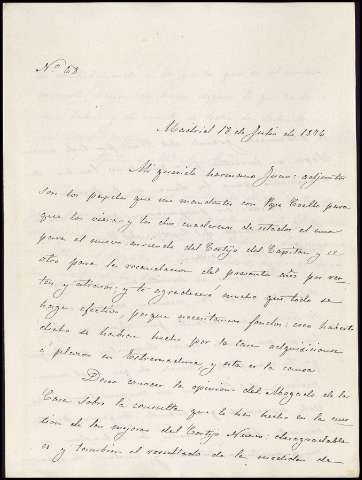 Nº 68
Madrid 18 de Julio de 1886
Mi querido hermano Juan: adjuntos
son los papeles que me mandastes con Pepe Coello para
que los viera y los dos cuadernos de estados el uno
para el nuevo arriendo del Cortijo del Capitan, y el
otro para la recaudacion del presente año por ren-
tas y atrasos; y te agradeceré mucho que todo se
haga efectivo porque necesitamos fondos:
dicho se habian hecho por la Casa adquisiciones
á plazos en Extremadura, y esta es la causa
Deseo conocer la opinion del Abogado de la
Casa sobre la consulta que le han hecho en la cues-
tion de las mejoras del Cortijo Nuevo: desagradable
es y tambien el resultado de la medida de